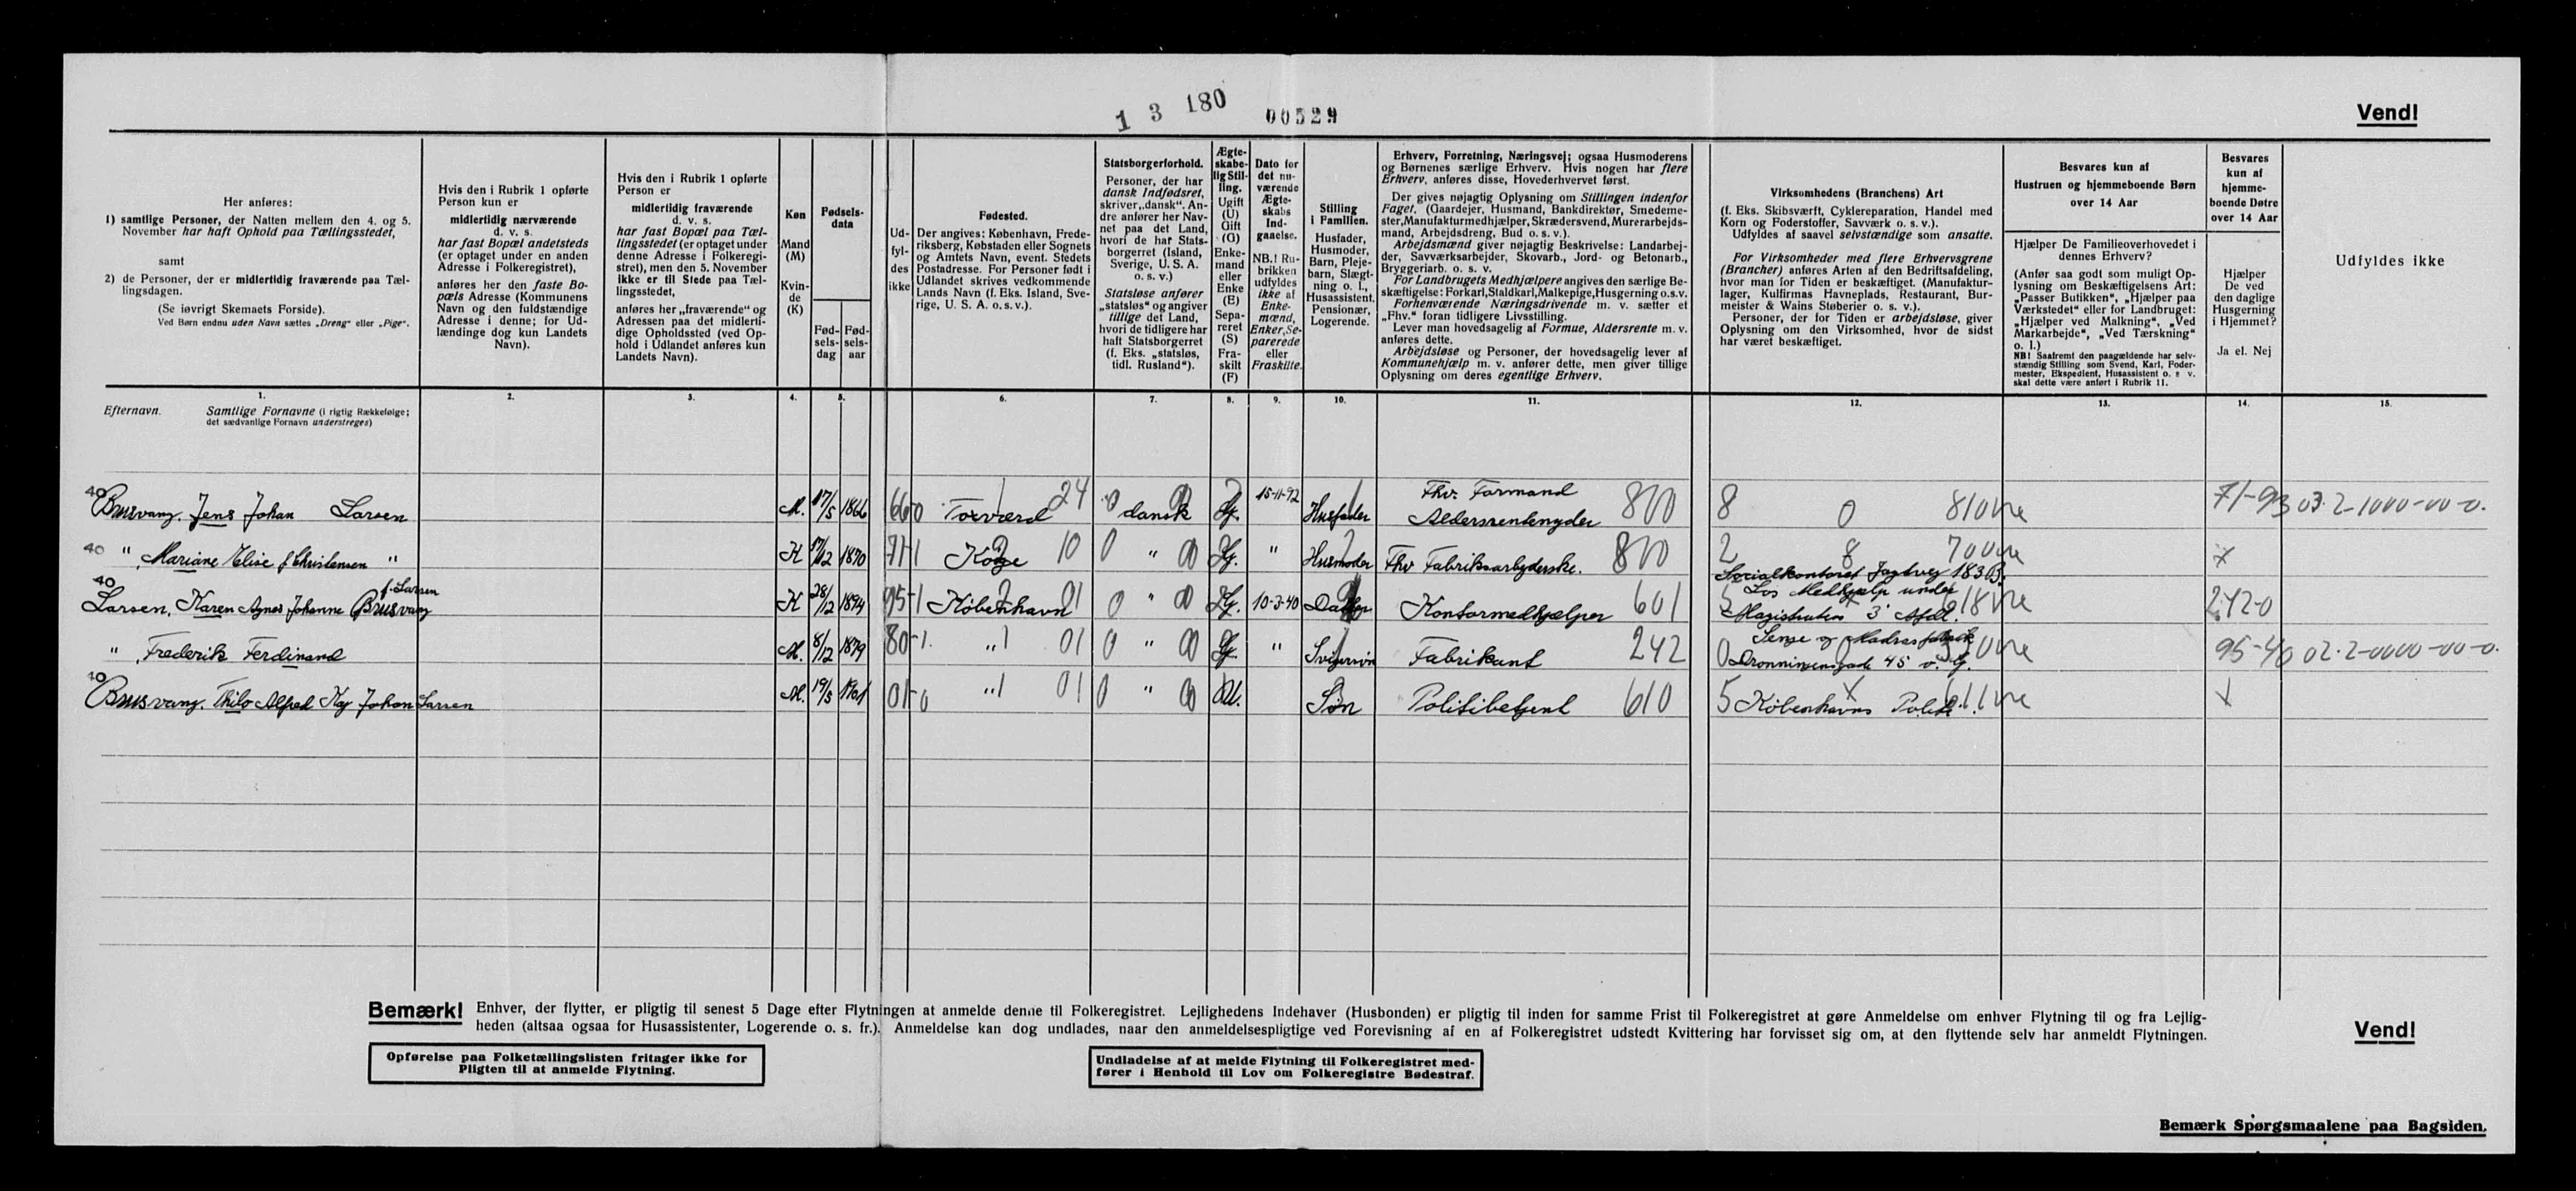 1 3 180 00529
Vend!
Her anføres:
1) samtlige Personer, der Natten mellem den 4. og 5.
November har haft Ophold paa Tællingsstedet,
samt
2) de Personer, der er midlertidig fraværende paa Tæl-
lingsdagen.
(Se iøvrigt Skemaets Forside).
Ved Børn endnu uden Navn sættes „Dreng“ eller „Pige“.
Hvis den i Rubrik 1 opførte
Person kun er
midlertidig nærværende
d. v. s.
har fast Bopæl andetsteds
(er optaget under en anden
Adresse i Folkeregistret),
anføres her den faste Bo-
pæls Adresse (Kommunens
Navn og den fuldstændige
Adresse i denne; for Ud-
lændinge dog kun Landets
Navn).
Hvis den i Rubrik 1 opførte
Person er
midlertidig fraværende
d. v. s.
har fast Bopæl paa Tæl-
lingsstedet (er optaget under
denne Adresse i Folkeregi-
stret), men den 5. November
ikke er til Stede paa Tæl-
lingsstedet,
anføres her „fraværende“ og
Adressen paa det midlerti-
dige Opholdssted (ved Op-
hold i Udlandet anføres kun
Landets Navn).
Køn
Mand
(M)
Kvin-
de
(K)
Fødsels-
data
Fød-
sels-
dag
Fød-
sels-
aar
Ud-
fyl-
des
ikke
Fødested.
Der angives: København, Frede-
riksberg, Købstaden eller Sognets
og Amtets Navn, event. Stedets
Postadresse. For Personer født i
Udlandet skrives vedkommende
Lands Navn (f. Eks. Island, Sve-
rige, U. S. A. o. s. v.).
Statsborgerforhold.
Personer, der har
dansk Indfødsret,
skriver „dansk“. An-
dre anfører her Nav-
net paa det Land,
hvori de har Stats-
borgerret (Island,
Sverige, U. S. A.
o. s. v.)
Statsløse anfører
„statsløs“ og angiver
tillige det Land,
hvori de tidligere har
haft Statsborgerret
(f. Eks. „statsløs,
tidl. Rusland“).
Ægte-
skabe-
lig Stil-
ling.
Ugift
(U)
Gift
(G)
Enke-
mand
eller
Enke
(E)
Sepa-
reret
(S)
Fra-
skilt
(F)
Dato for
det nu-
værende
Ægte-
skabs
Ind-
gaaelse.
NB.! Ru-
brikken
udfyldes
ikke af
Enke-
mænd,
Enker, Se-
parerede
eller
Fraskilte.
Stilling
i Familien.
Husfader,
Husmoder,
Barn, Pleje-
barn, Slægt-
ning o. l.,
Husassistent,
Pensionær,
Logerende.
Erhverv, Forretning, Næringsvej; ogsaa Husmoderens
og Børnenes særlige Erhverv. Hvis nogen har flere
Erhverv, anføres disse, Hovederhvervet først.
Der gives nøjagtig Oplysning om Stillingen indenfor
Faget. (Gaardejer, Husmand, Bankdirektør, Smedeme-
ster, Manufakturmedhjælper, Skrædersvend, Murerarbejds-
mand, Arbejdsdreng, Bud o. s. v.).
Arbejdsmænd giver nøjagtig Beskrivelse: Landarbej-
der, Savværksarbejder, Skovarb., Jord- og Betonarb.,
Bryggeriarb. o. s. v.
For Landbrugets Medhjælpere angives den særlige Be-
skæftigelse: Forkarl, Staldkarl, Malkepige, Husgerning o.s.v.
Forhenværende Næringsdrivende m. v. sætter et
„Fhv.“ foran tidligere Livsstilling.
Lever man hovedsagelig af Formue, Aldersrente m. v.
anføres dette.
Arbejdsløse og Personer, der hovedsagelig lever af
Kommunehjælp m. v. anfører dette, men giver tillige
Oplysning om deres egentlige Erhverv.
Virksomhedens (Branchens) Art
(f. Eks. Skibsværft, Cyklereparation, Handel med
Korn og Foderstoffer, Savværk o. s. v.).
Udfyldes af saavel selvstændige som ansatte.
For Virksomheder med flere Erhvervsgrene
(Brancher) anføres Arten af den Bedriftsafdeling,
hvor man for Tiden er beskæftiget. (Manufaktur-
lager, Kulfirmas Havneplads, Restaurant, Bur-
meister & Wains Støberier o. s. v.).
Personer, der for Tiden er arbejdsløse, giver
Oplysning om den Virksomhed, hvor de sidst
har været beskæftiget.
Besvares kun af
Hustruen og hjemmeboende Børn
over 14 Aar
Hjælper De Familieoverhovedet i
dennes Erhverv?
(Anfør saa godt som muligt Op-
lysning om Beskæftigelsens Art:
„Passer Butikken“, „Hjælper paa
Værkstedet“ eller for Landbruget:
„Hjælper ved Malkning“, „Ved
Markarbejde“, „Ved Tærskning“
o. l.)
NB! Saafremt den paagældende har selv-
stændig Stilling som Svend, Karl, Foder-
mester, Ekspedient, Husassistent o. s. v.
skal dette være anført i Rubrik 11.
Besvares
kun af
hjemme-
boende Døtre
over 14 Aar
Hjælper
De ved
den daglige
Husgerning
i Hjemmet?
Ja el. Nej
Udfyldes ikke
1. 2. 3. 4. 5. 6. 7. 8. 9. 10. 11. 12. 13. 14. 15.
Efternavn. Samtlige Fornavne (i rigtig Rækkefølge;
det sædvanlige Fornavn understreges)
40 Brusvang, Jens Johan Larsen M. 17/5 1866 66-0 Torværd 24 0 dansk 0 G. 15-11-92 Husfader Fhv. Formand
Aldersrentenyder 800 8 0 810 71-93 03.2-1000-00-0.
40 " , Mariane Elise f. Christensen " K 17/12 1870 71-1 Køge 10 0 " 0 G. " Husmoder Fhv Fabriksarbejderske. 800 2 8 700 x
40 Larsen, Karen Agnes Johanne Brusvang f. Larsen K 28/12 1894 95-1 København 01 0 " 0 G. 10-3-40 Datter Kontormedhjælper 601 5 Socialkontoret Jagtvej 183 B.
Løs Medhjælp under
Magistraten 3' Afdl. 618 2.42-0
" , Frederik Ferdinand M. 8/12 1879 80-1. " 01 0 " 0 G. " Svigersøn Fabrikant 242 0 Senge og Madrasfabrik
Dronningensgade 45 v. G. 95-40 02.2-0000-00-0.
40 Brusvang. Thilo Alfred Kaj Johan Larsen M. 19/5 1901 01-0 " 01 0 " 0 U. Søn Politibetjent 610 5 Københavns Politi. 611 x
Bemærk! Enhver, der flytter, er pligtig til senest 5 Dage efter Flytningen at anmelde denne til Folkeregistret. Lejlighedens Indehaver (Husbonden) er pligtig til inden for samme Frist til Folkeregistret at gøre Anmeldelse om enhver Flytning til og fra Lejlig-
heden (altsaa ogsaa for Husassistenter, Logerende o. s. fr.). Anmeldelse kan dog undlades, naar den anmeldelsespligtige ved Forevisning af en af Folkeregistret udstedt Kvittering har forvisset sig om, at den flyttende selv har anmeldt Flytningen.
Vend!
Opførelse paa Folketællingslisten fritager ikke for
Pligten til at anmelde Flytning.
Undladelse af at melde Flytning til Folkeregistret med-
fører i Henhold til Lov om Folkeregistre Bødestraf.
Bemærk Spørgsmaalene paa Bagsiden.